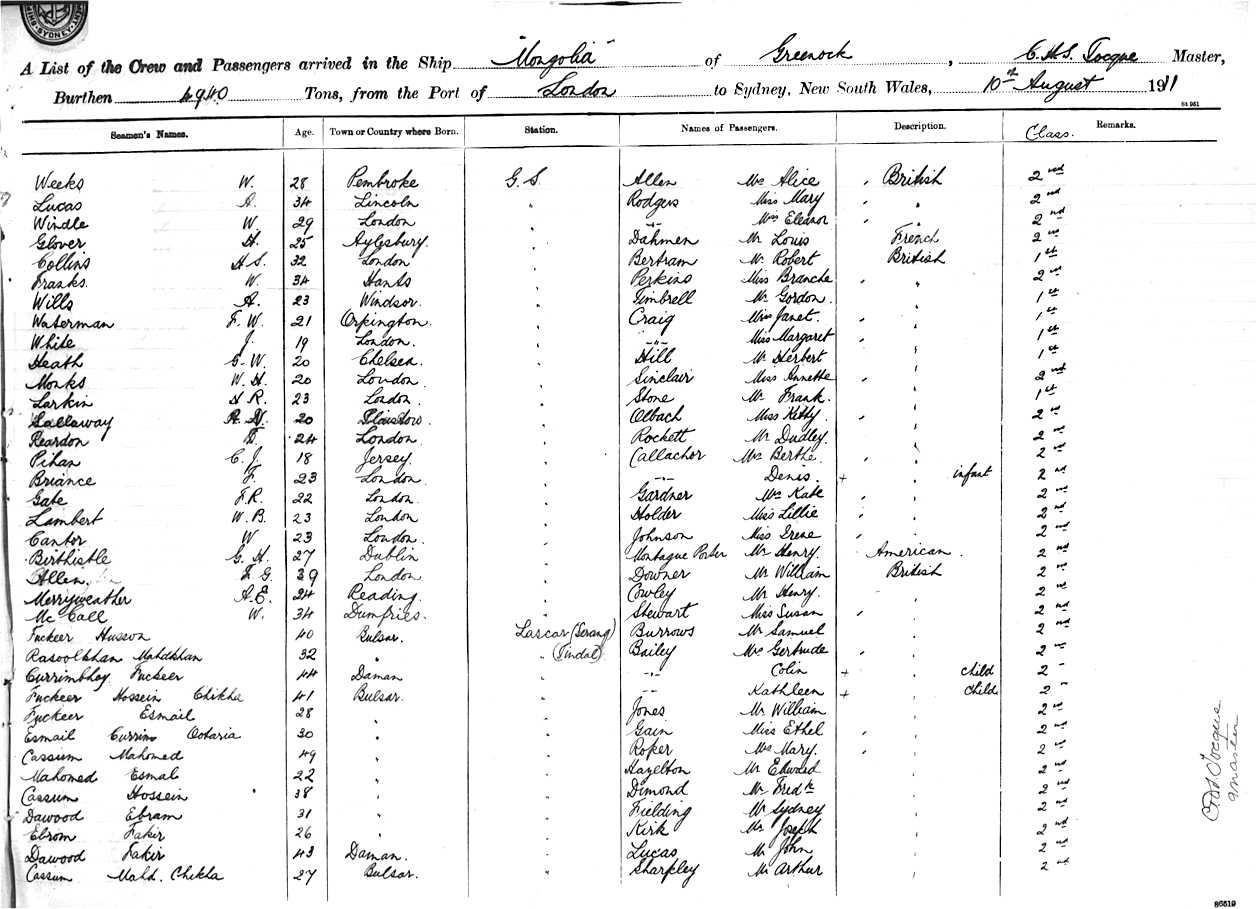 SYDNEY
A List of the Crew and Passengers arrived in the Ship "Mongolia" of Greenock, C.H.S. Tocque Master,
Burthen 4940 Tons, from the Port of London to Sydney, New South Wales, 10th August 1911
84 951
Seamen's Names. Age. Town or Country where Born. Station. Names of Passengers. Description. Class. Remarks.
Weeks W. 28 Pembroke G.S. Allen Mrs Alice British 2nd
Lucas A. 34 Lincoln " Rodgers Miss Mary " 2nd
Windle W. 29 London " -"- Miss Eleanor " 2nd
Glover H. 25 Aylesbury. " Dahmen Mr Louis French 2nd
Collins H S. 32 London " Bertram Mr Robert British 1st
Franks. W. 34 Hants " Perkins Miss Branche " 2nd
Wills A. 23 Windsor. " Timbrell Mr Gordon. " 1st
Waterman F. W. 21 Orpington. " Craig Miss Janet. " 1st
White J. 19 London. " -"- Miss Margaret " 1st
Heath G. W. 20 Chelsea. " Hill Mr Herbert " 1st
Monks W. H. 20 London " Sinclair Miss Annette " 2nd
Larkin H R. 23 London. " Stone Mr Frank. " 1st
Gallaway A. 20 Plaistow. " Olbach Miss Ketty " 2nd
Reardon D. 24 London. " Rockett Mr Dudley. " 2nd
Pihan C. J. 18 Jersey. " Callachor Mrs Berthe. " 2nd
Briance F. 23 London. " -"- Denis. + " infant 2nd
Gate F.R. 22 London. " Gardner Mrs Kate " 2nd
Lambert W. B. 23 London " Holder Miss Lillie " 2nd
Cantor W 23 London. " Johnson Miss Irene " 2nd
Birthistle G. H. 27 Dublin " Montague Porter Mr Henry. American. 2nd
Allen. F G. 39 London " Downer Mr William British 2nd
Merryweather A.E. 24 Reading. " Cowley Mr Henry. " 2nd
Mc Call W. 34 Dumfries. " Stewart Miss Susan " 2nd
Fuckeer Husson 40 Bulsar. Lascar (Serang) Burrows Mr Samuel " 2nd
Rasoolkhan Mahdkhan 32 " " (Tindal) Bailey Mrs Gertrude " 2nd
Currimbhoy Fuckeer 44 Daman " -"- Colin + " child 2"
Fuckeer Hossein Chikha 41 Bulsar. " -"- Kathleen + " child 2"
Fuckeer Esmail 28 " " Jones Mr William " 2nd
Esmail Currim Ootaria 30 " " Gain Miss Ethel " 2nd
Cassum Mahomed 49 " " Roper Mrs Mary. " 2nd
Mahomed Esmal 22 " " Hazelton Mr Edward " 2nd
Cassum Hossein 38 " " Dimond Mr Fredk " 2nd
Dawood Ebram 31 " " Fielding Mr Sydney " 2nd
Ebrom Fakir 26 " " Kirk Mr Joseph " 2nd
Dawood Fakir 43 Daman. " Lucas Mr John " 2nd
Cassum Mahd. Chikha 27 Bulsar. " Sharpley Mr Arthur " 2nd
Tocque
Master
86519